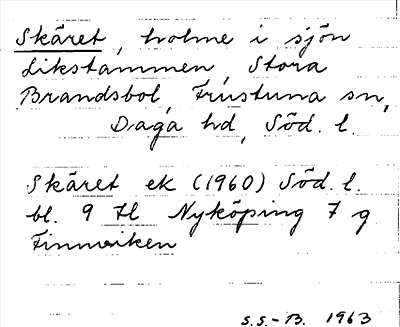 Skäret, holme i sjön
Likstammen, Stora
Brandsbol, Frustuna sn,
Daga hd, Söd. l.
Skäret ek (1960) Söd. l.
bl. 9 H Nyköping 7 g
Finnviken
S.S.-B. 1963